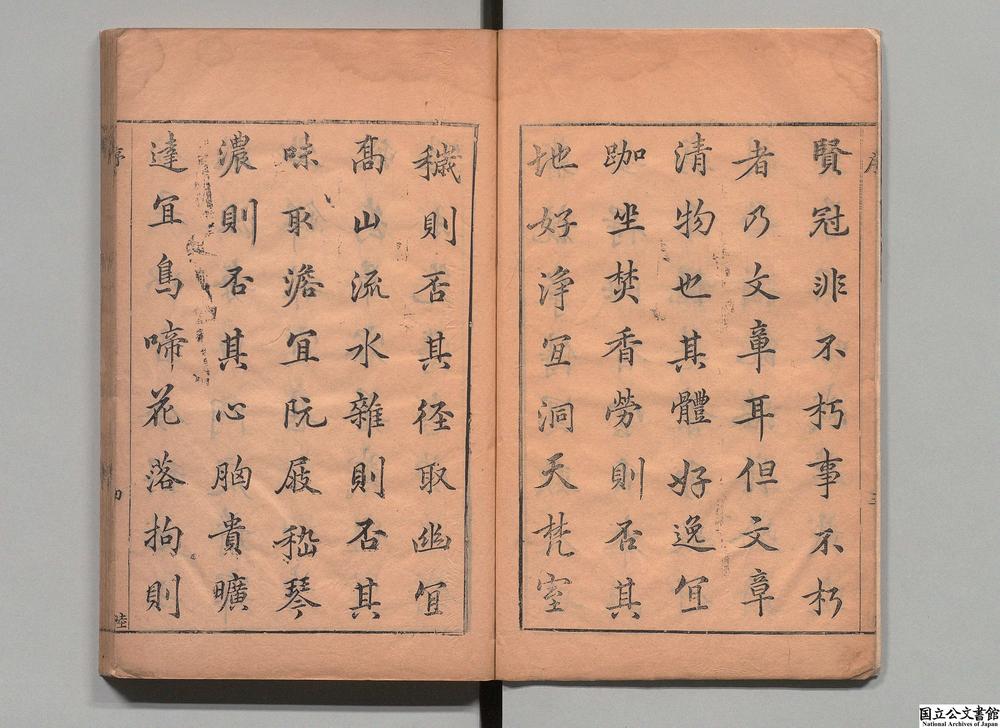 賢冠非不朽事不朽
者乃文章耳但文章
清物也其體好逸冝
跏坐焚香勞則否其
地好浄冝洞天梵室
穢則否其径取幽冝
髙山流水雜則否其
味取澹冝阮屐嵇琴
濃則否其心胸貴曠
達冝鳥啼花落拘則
序
国立公文書館
National Archives of Japan